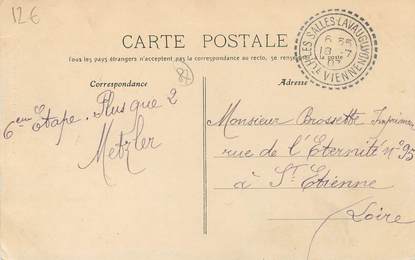 12€
CARTE POSTALE
Tous les pays étrangers n'acceptent pas la correspondance au recto, se renseigner
Correspondance
Adresse
LES SALLES-LAVAUGUYON
Hte VIENNE
6 35
18 -7
07
82
6eme Etape. Plus que 2
Metzler
Monsieur Brossette Imprimeur
rue de l'Eternité n° 95
à St. Etienne
Loire